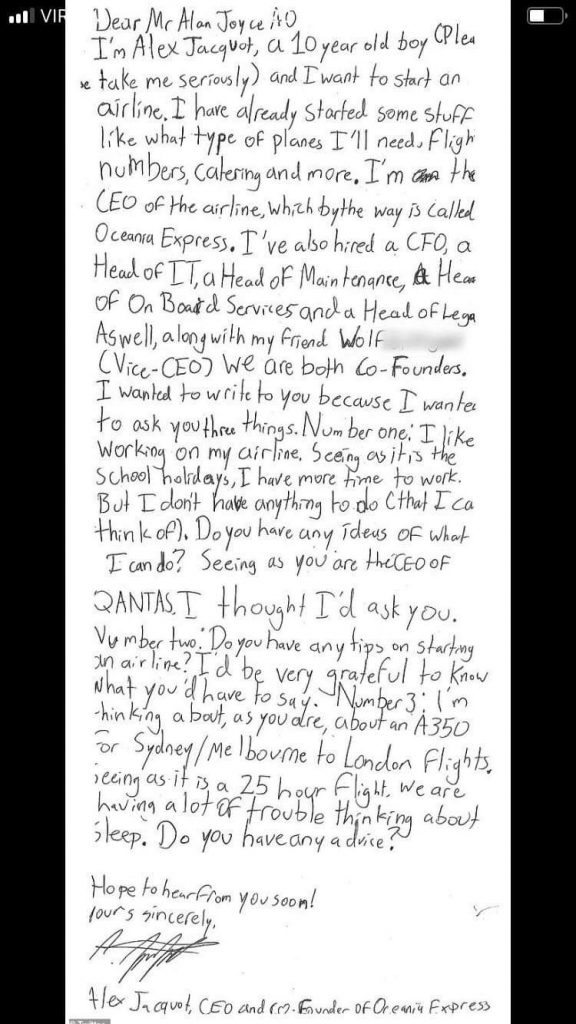 VIR
Dear Mr Alan Joyce AO
I'm Alex Jacquot, a 10 year old boy (Plea
se take me seriously) and I want to start an
airline. I have already started some stuff
like what type of planes I'll need, fligh
numbers, catering and more. I'm the
CEO of the airline, which by the way is called
Oceania Express. I've also hired a CFO, a
Head of IT, a Head of Maintenance, A Hea
of On Board Services and a Head of Lega
Aswell, along with my friend Wolf
(Vice-CEO) We are both Co-Founders.
I wanted to write to you because I wante
to ask you three things. Number one: I like
working on my airline. Seeing as it is the
school holidays, I have more time to work.
But I don't have anything to do (that I ca
think of). Do you have any ideas of what
I can do? Seeing as you are the CEO of
QANTAS. I thought I'd ask you.
Number two: Do you have any tips on starting
an airline? I'd be very grateful to know
what you'd have to say. Number 3: I'm
hinking about, as you are, about an A350
for Sydney/Melbourne to London flights.
seeing as it is a 25 hour flight. we are
having a lot of trouble thinking about
sleep. Do you have any advice?
Hope to hear from you soon!
Yours sincerely,
Alex Jacquot, CEO and Co-Founder of Oceania Express